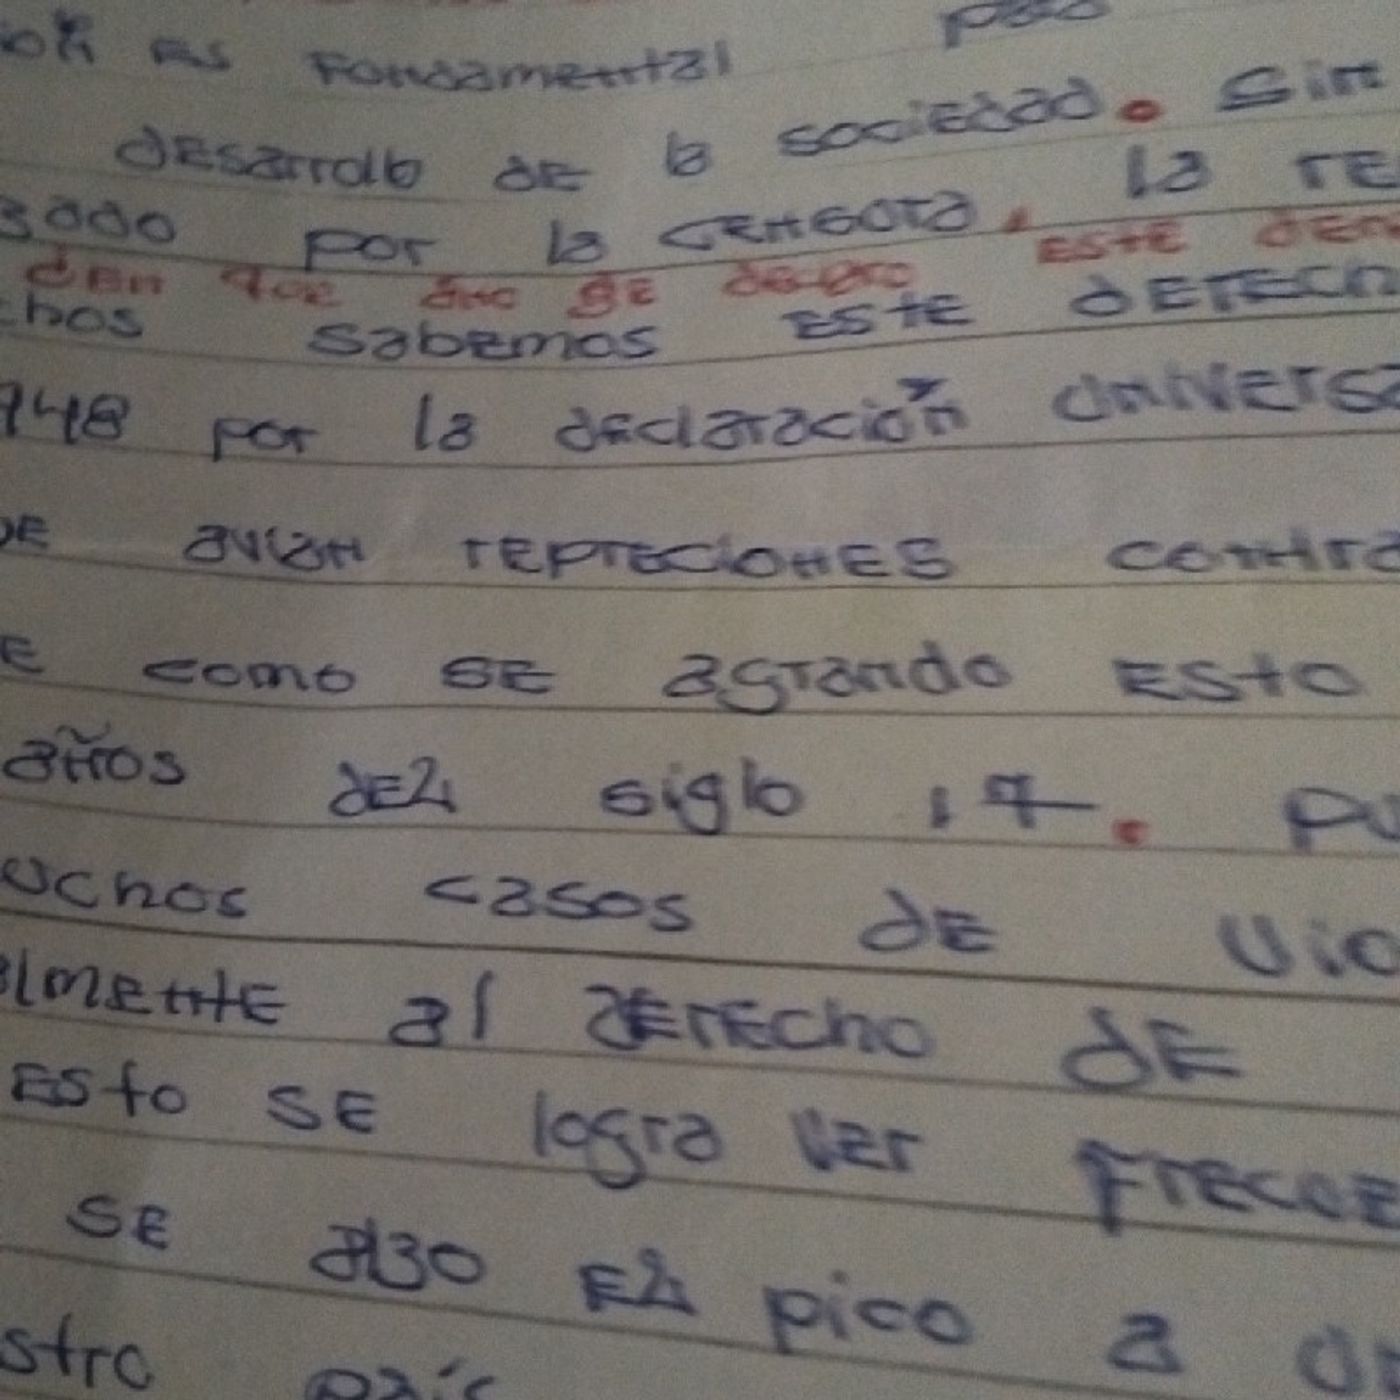 es fondamental
desarrollo de la sociedad. Sin
por la censora, la re
den que año se
este den
chos sabemos este derech
948 por la declaración Universa
avian repreciones contra
e como se agrando esto
años del siglo 17. pu
uchos casos de vio
almente al derecho de
Esto se logra ver frecue
se alzo el pico a
stro país